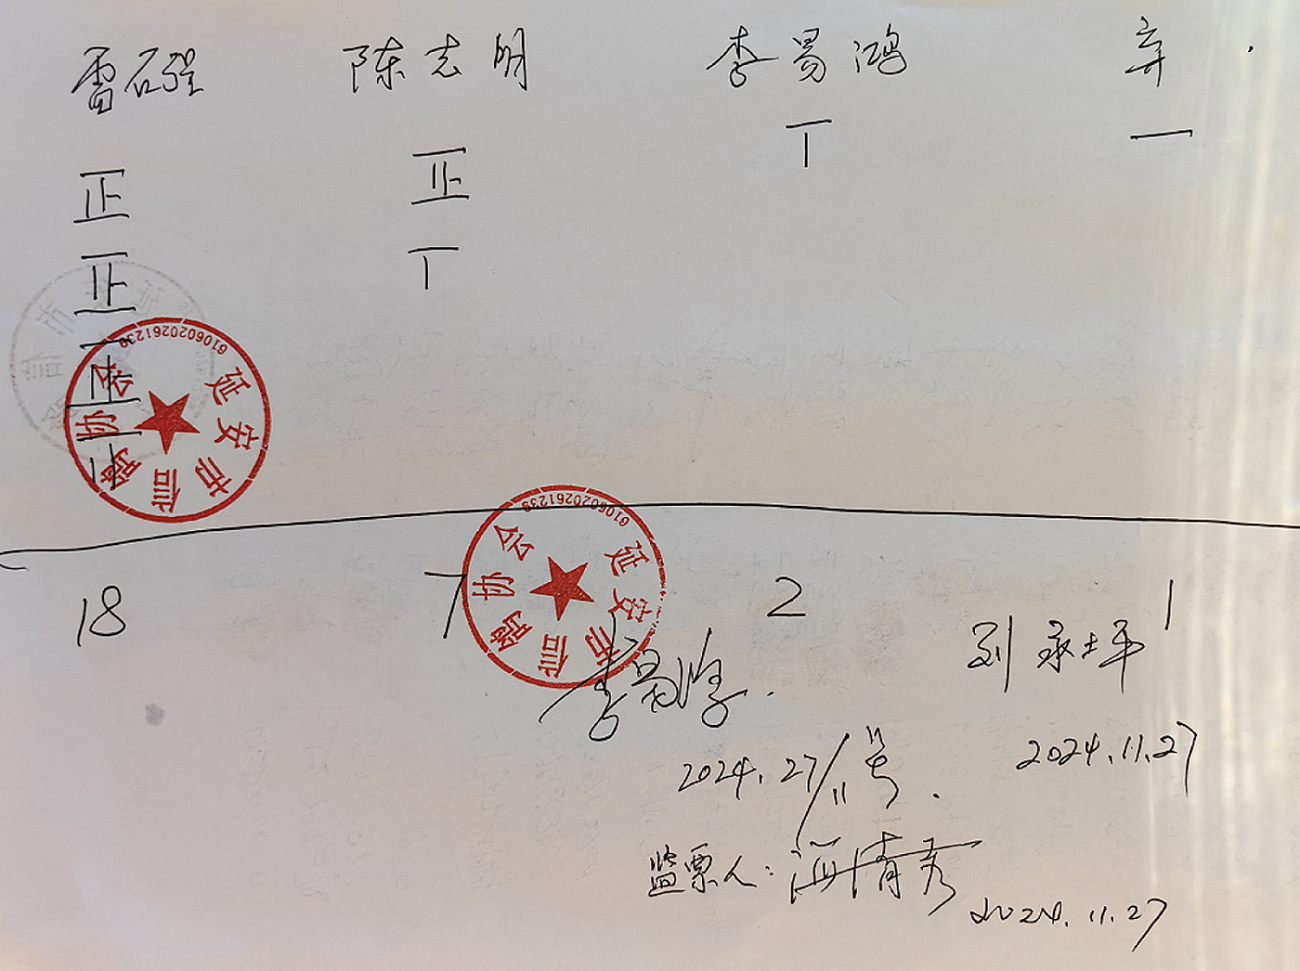 雷石强 陈志明 李易鸿 弃
正 正 丅 一
正 丅
正
18 7 2 1
延安市信鸽协会
6106020261239
延安市信鸽协会
6106020261239
刘永坪
2024.27/11号.
2024.11.27
监票人:
2024.11.27